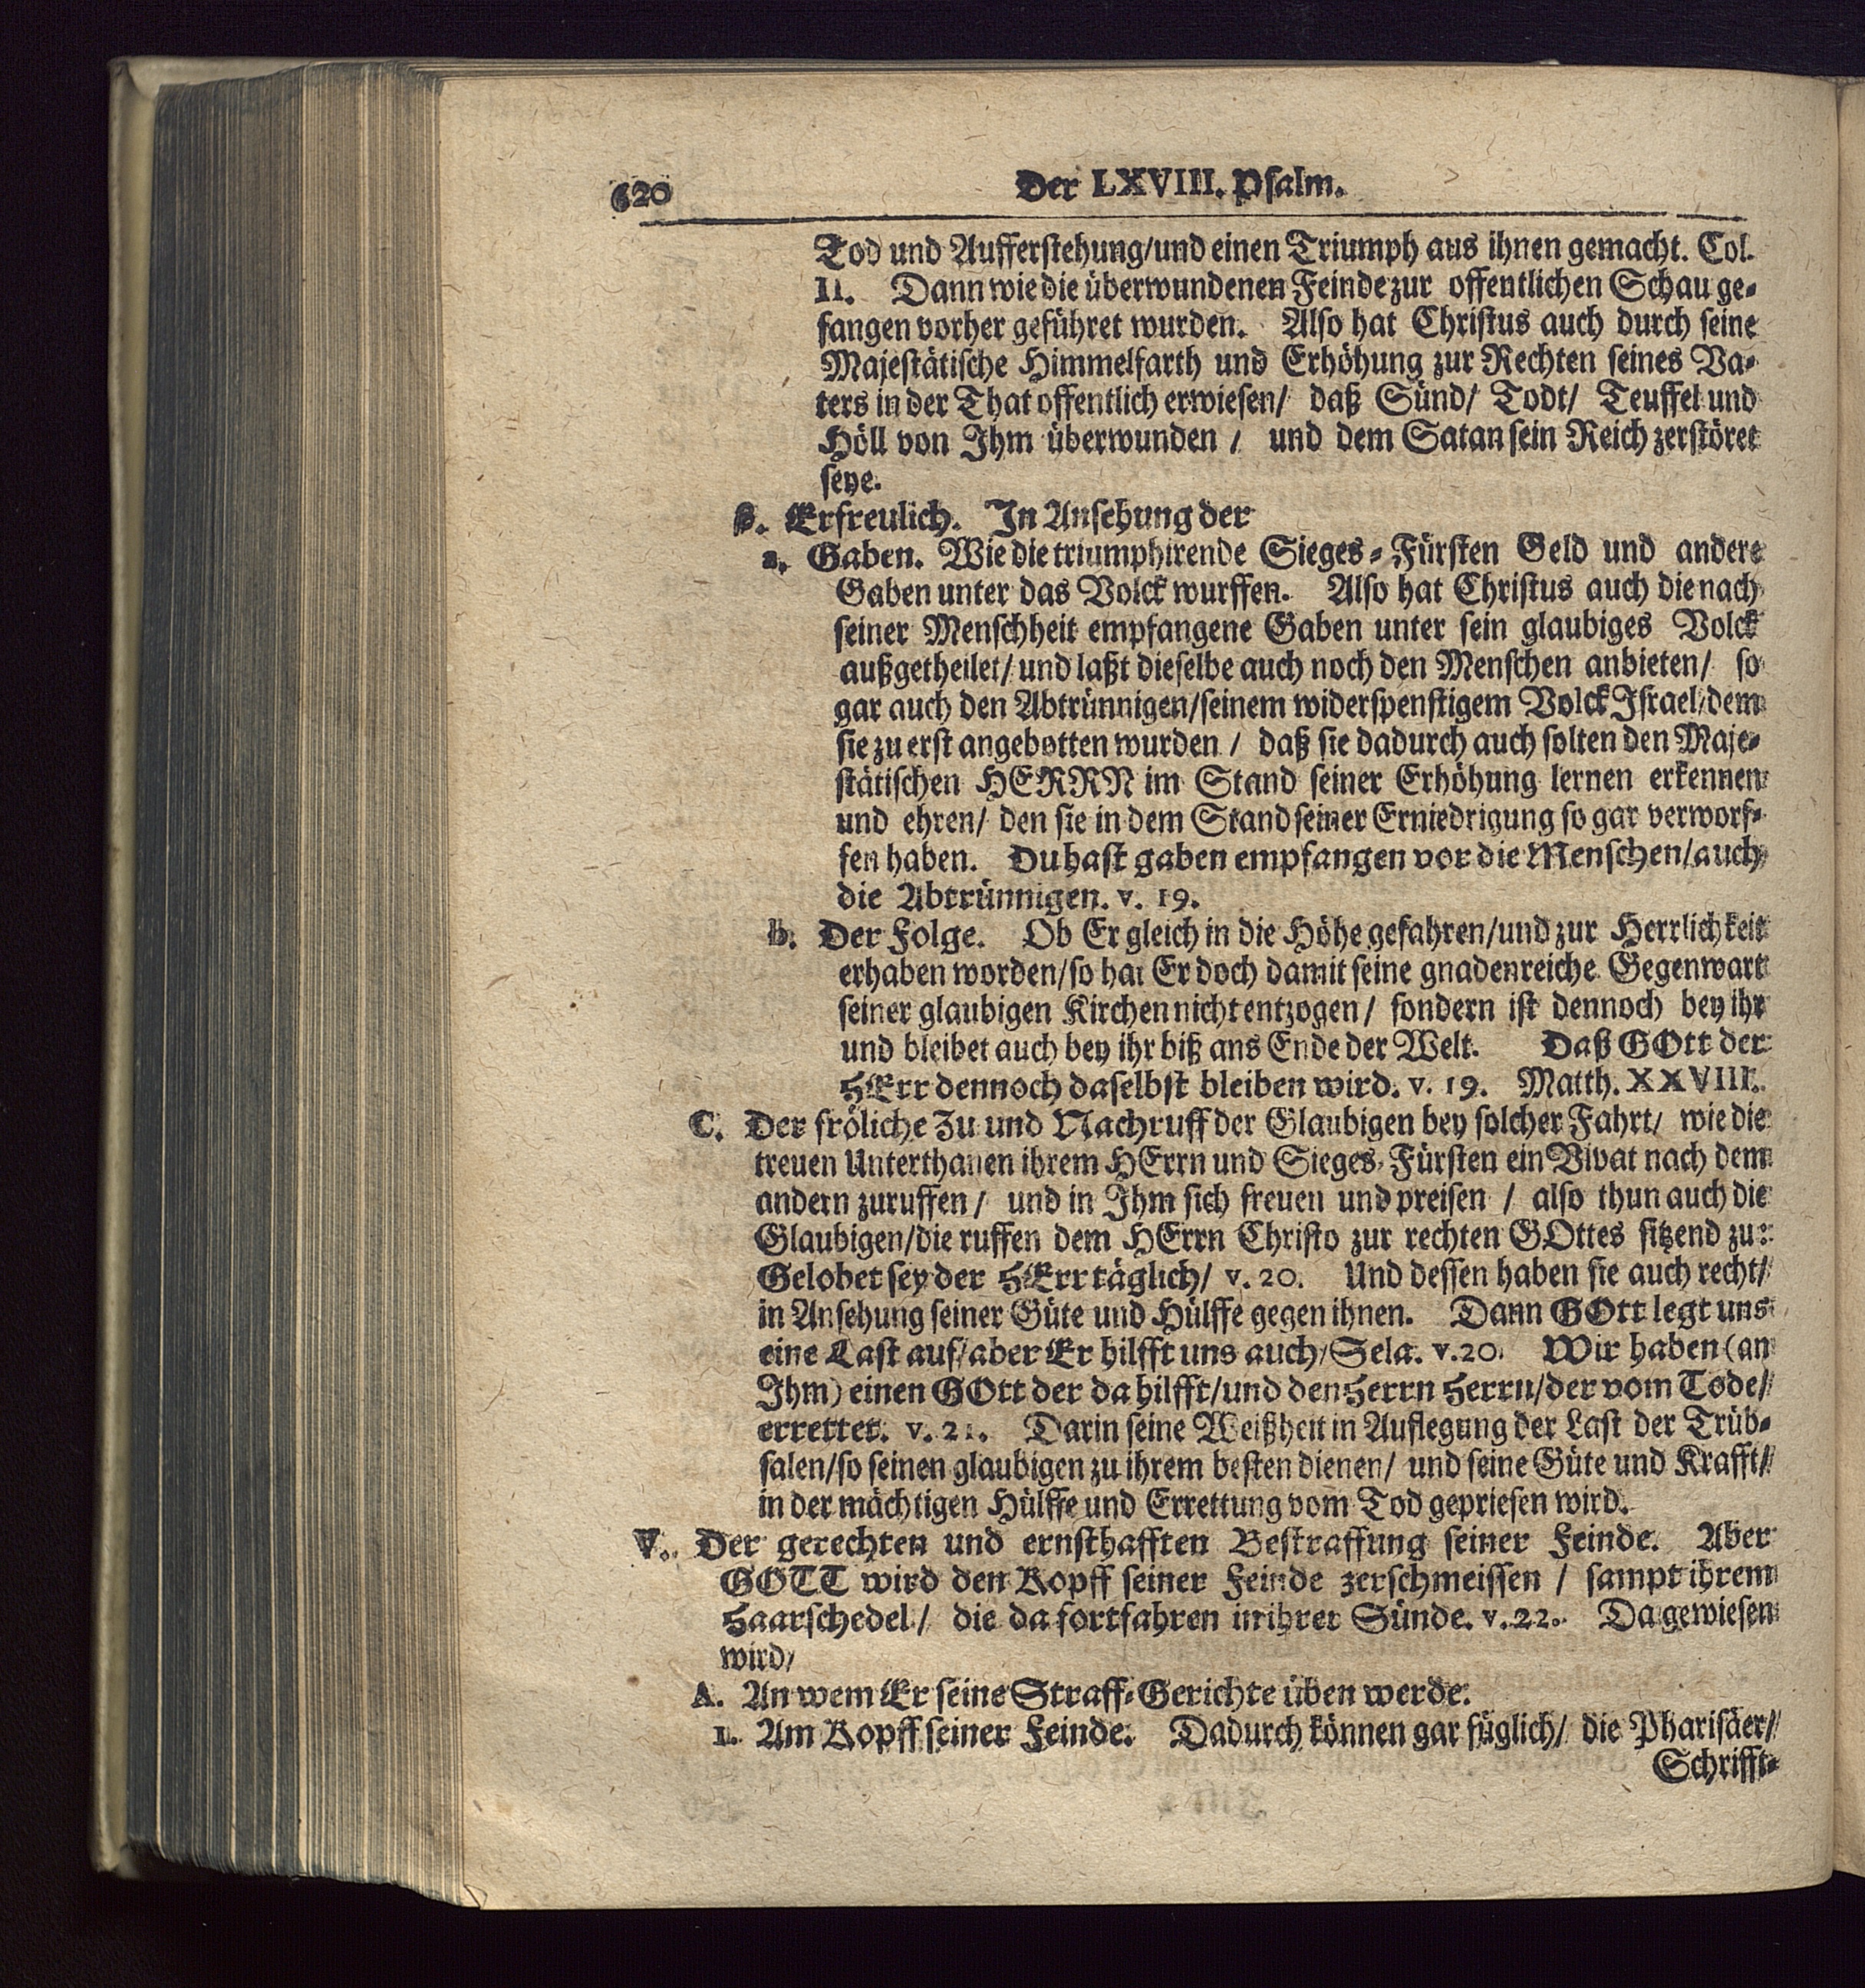 620 Der LXVIII. Psalm.
Tod und Aufferstehung/und einen Triumph aus ihnen gemacht. Col.
II. Dann wie die überwundenen Feinde zur offentlichen Schau ge-
fangen vorher geführet wurden. Also hat Christus auch durch seine
Majestätische Himmelfarth und Erhöhung zur Rechten seines Va-
ters in der That offentlich erwiesen/ daß Sünd/ Todt/ Teuffel und
Höll von Ihm überwunden / und dem Satan sein Reich zerstöret
seye.
β. Erfreulich. In Ansehung der
a. Gaben. Wie die triumphirende Sieges-Fürsten Geld und andere
Gaben unter das Volck wurffen. Also hat Christus auch die nach
seiner Menschheit empfangene Gaben unter sein glaubiges Volck
außgetheilet/ und laßt dieselbe auch noch den Menschen anbieten/ so
gar auch den Abtrünnigen/seinem widerspenstigem Volck Israel/dem
sie zu erst angebotten wurden / daß sie dadurch auch solten den Maje-
stätischen HERRN im Stand seiner Erhöhung lernen erkennen
und ehren/ den sie in dem Stand seiner Erniedrigung so gar verworf-
fen haben. Du hast gaben empfangen vor die Menschen/auch
die Abtrünnigen. v. 19.
b. Der Folge. Ob Er gleich in die Höhe gefahren/und zur Herrlichkeit
erhaben worden/so hat Er doch damit seine gnadenreiche Gegenwart
seiner glaubigen Kirchen nicht entzogen/ sondern ist dennoch bey ihr
und bleibet auch bey ihr biß ans Ende der Welt. Daß GOtt der
HErr dennoch daselbst bleiben wird. v. 19. Matth. XXVIII.
C. Der fröliche Zu und Nachruff der Glaubigen bey solcher Fahrt/ wie die
treuen Unterthanen ihrem HErrn und Sieges-Fürsten ein Vivat nach dem
andern zuruffen/ und in Ihm sich freuen und preisen / also thun auch die
Glaubigen/die ruffen dem HErrn Christo zur rechten GOttes sitzend zu:
Gelobet sey der HErr täglich/ v. 20. Und dessen haben sie auch recht/
in Ansehung seiner Güte und Hülffe gegen ihnen. Dann GOtt legt uns
eine Last auf/aber Er hilfft uns auch/Sela. v. 20. Wir haben (an
Ihm) einen GOtt der da hilfft/und den Herrn Herrn/der vom Tode/
errettet. v. 21. Darin seine Weißheit in Auflegung der Last der Trüb-
salen/so seinen glaubigen zu ihrem besten dienen/ und seine Güte und Krafft/
in der mächtigen Hülffe und Errettung vom Tod gepriesen wird.
V. Der gerechten und ernsthafften Bestraffung seiner Feinde. Aber
GOTT wird den Kopff seiner Feinde zerschmeissen / sampt ihrem
Haarschedel/ die da fortfahren in ihrer Sünde. v. 22. Da gewiesen
wird/
A. An wem Er seine Straff-Gerichte üben werde.
1. Am Kopff seiner Feinde. Dadurch können gar füglich/ die Pharisäer/
Schrifft-